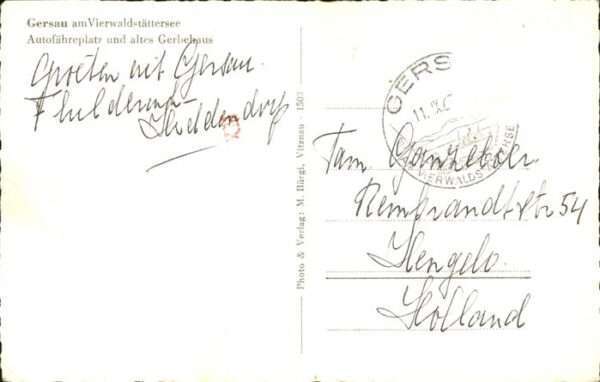 Gersau am Vierwaldstättersee
Autofähreplatz und altes Gerbehaus
Groeten uit Gersau.
Hiddendorp
Photo & Verlag: M. Bürgi, Vitznau - 1503
GERS
11.
VIERWALDS
Fam. Ganzeboer
Rembrandtstr 54
Hengelo.
Holland